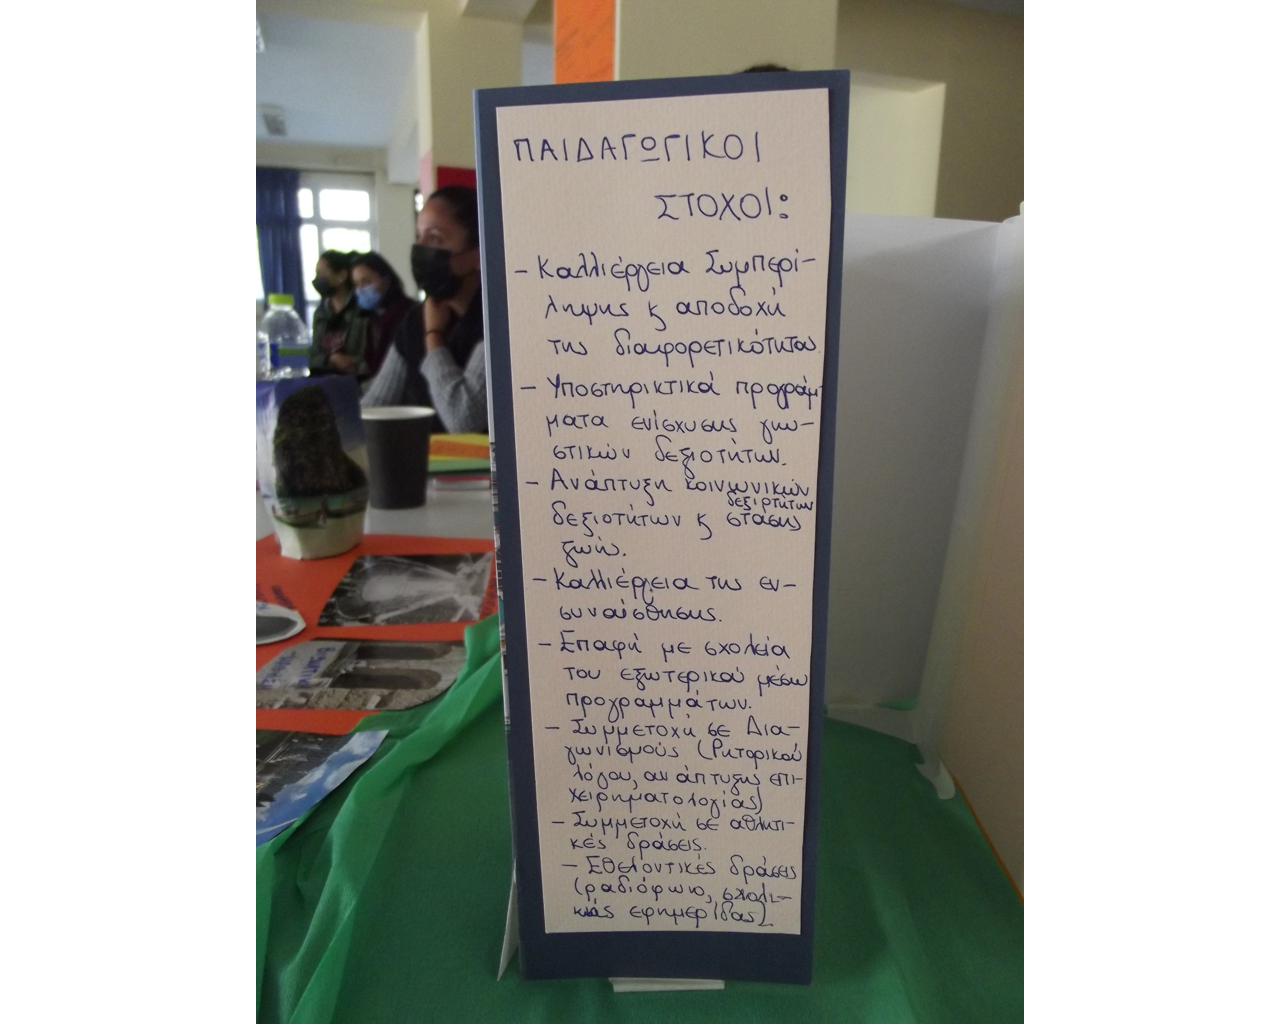 ΠΑΙΔΑΓΩΓΙΚΟΙ
ΣΤΟΧΟΙ:
- Καλλιέργεια Συμπερί-
ληψης κ αποδοχή
της διαφορετικότητας
- Υποστηρικτικά προγράμ-
ματα ενίσχυσης γνω-
στικών δεξιοτήτων.
- Ανάπτυξη κοινωνικών
δεξιοτήτων
δεξιοτήτων κ στάσης
ζωής.
- Καλλιέργεια της εν-
συναίσθησης.
- Επαφή με σχολεία
του εξωτερικού μέσω
προγραμμάτων.
- Συμμετοχή σε Δια-
γωνισμούς (Ρητορικού
λόγου, ανάπτυξης επι-
χειρηματολογίας)
- Συμμετοχή σε αθλητι-
κές δράσεις.
- Εθελοντικές δράσεις
(ραδιόφωνο, σχολι-
κής εφημερίδας)